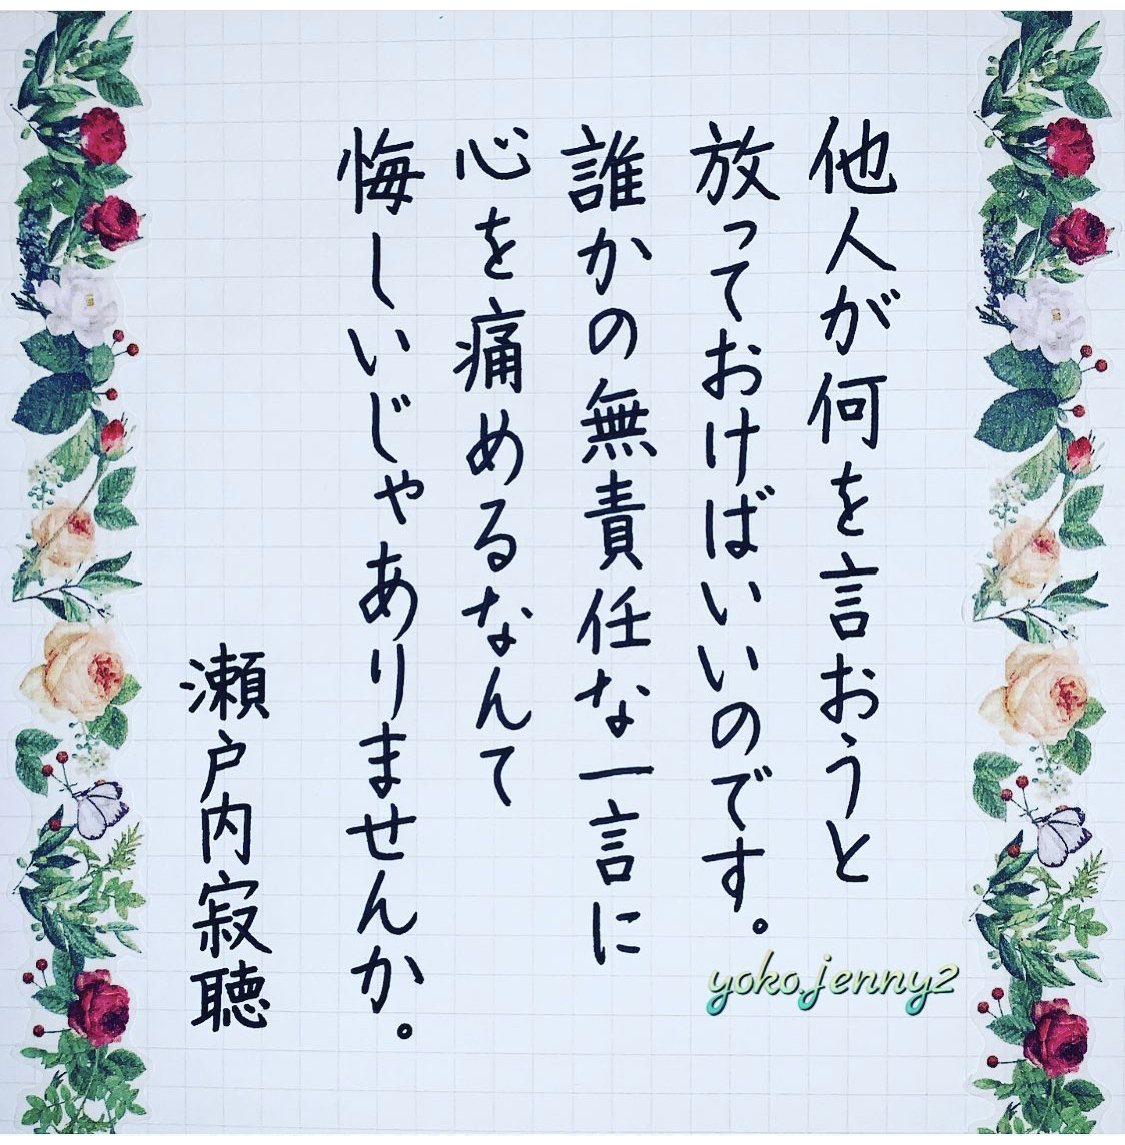 他人が何を言おうと
放っておけばいいのです。
誰かの無責任な一言に
心を痛めるなんて
悔しいじゃありませんか。
瀬戸内寂聴
yoko.jenny2